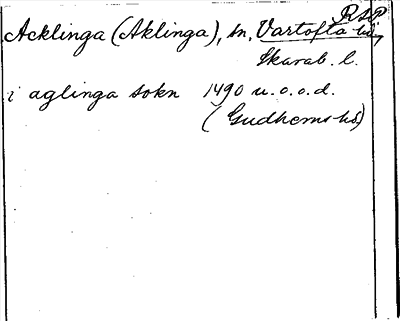 RSP
Acklinga (Aklinga), sn, Vartofta hd,
Skarab. l.
i aglinga sokn 1490 u.o.o.d.
(Gudhems hd)